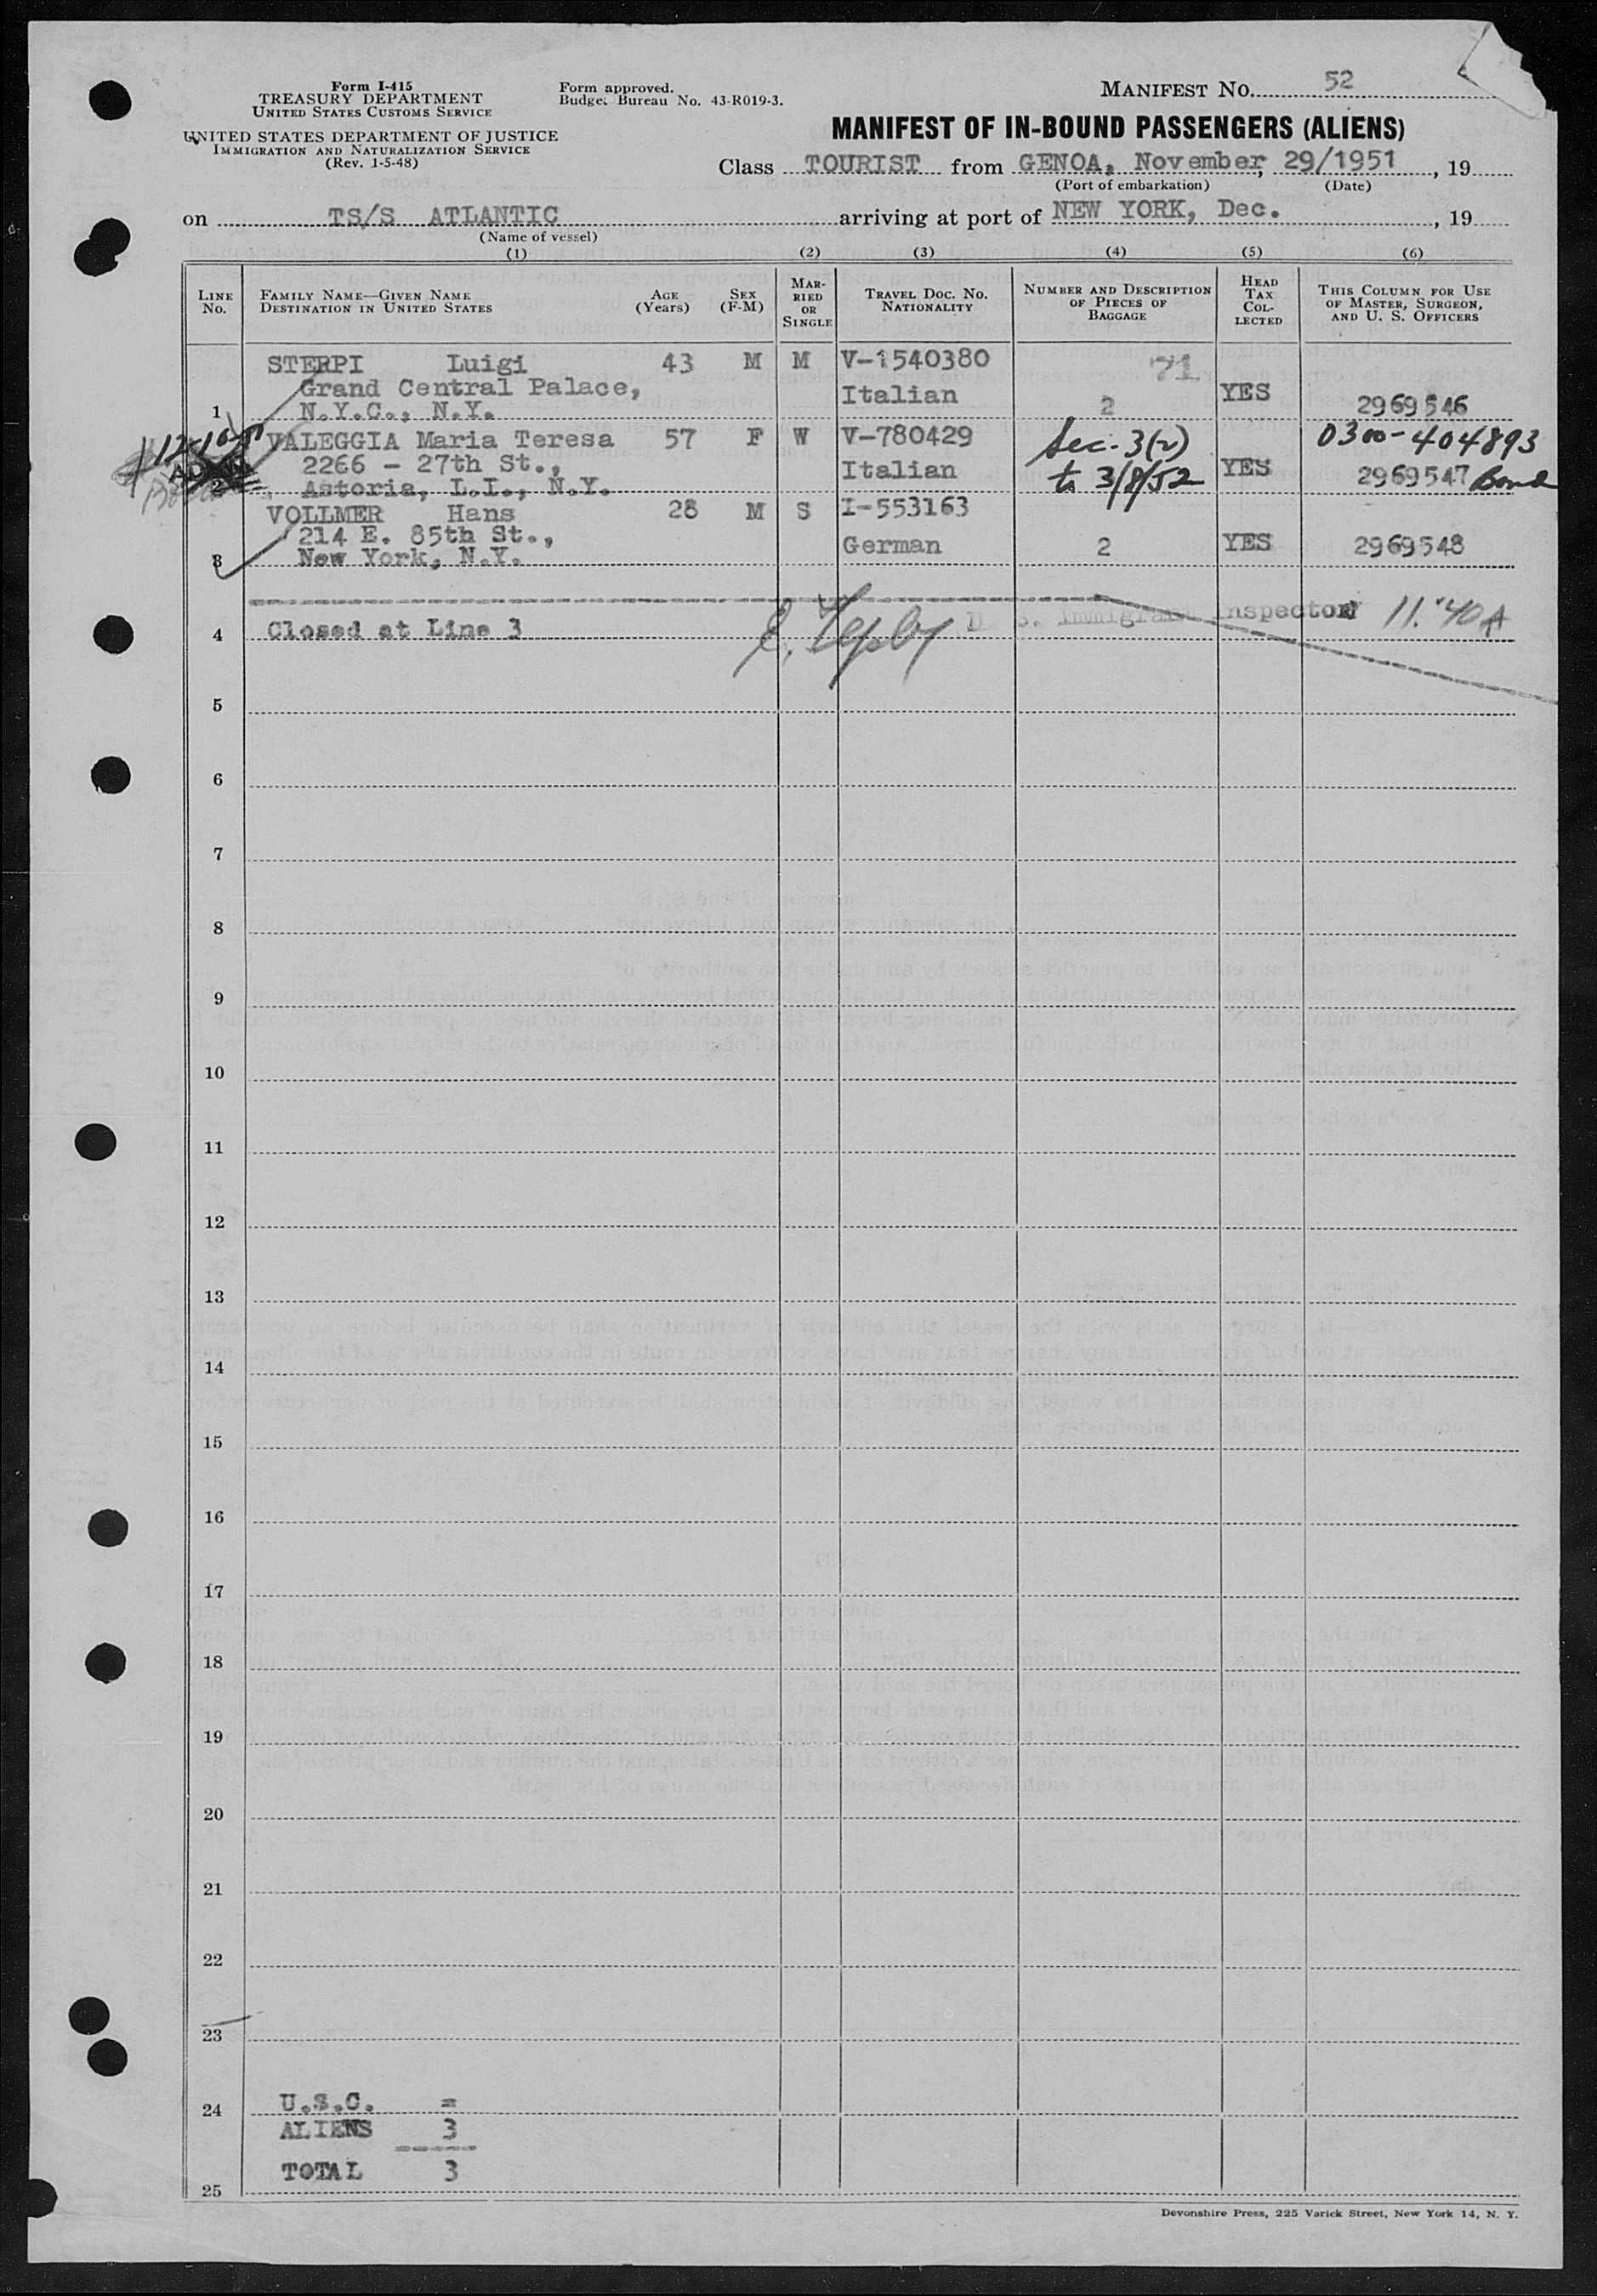 Form I-415
TREASURY DEPARTMENT
UNITED STATES CUSTOMS SERVICE
UNITED STATES DEPARTMENT OF JUSTICE
IMMIGRATION AND NATURALIZATION SERVICE
(Rev. 1-5-48)
Form approved.
Budget Bureau No. 43-R019-3.
MANIFEST NO. 52
MANIFEST OF IN-BOUND PASSENGERS (ALIENS)
Class TOURIST from GENOA, November 29/1951, 19
(Port of embarkation) (Date)
on TS/S ATLANTIC arriving at port of NEW YORK, Dec. , 19
(Name of vessel)
(1) (2) (3) (4) (5) (6)
LINE NO.
FAMILY NAME—GIVEN NAME
DESTINATION IN UNITED STATES
AGE (Years)
SEX (F-M)
MARRIED OR SINGLE
TRAVEL DOC. NO.
NATIONALITY
NUMBER AND DESCRIPTION OF PIECES OF BAGGAGE
HEAD TAX COLLECTED
THIS COLUMN FOR USE OF MASTER, SURGEON, AND U. S. OFFICERS
STERPI Luigi 43 M M V-1540380 71
Grand Central Palace, Italian YES
1 N.Y.C., N.Y. 2 2969546
VALEGGIA Maria Teresa 57 F W V-780429 Sec. 3(2) 0300-404893
2266 - 27th St., Italian to 3/8/52 YES 2969547 Bond
2 Astoria, L.I., N.Y.
VOLLMER Hans 28 M S I-553163
214 E. 85th St., German 2 YES 2969548
3 New York, N.Y.
4 Closed at Line 3 Immigrant Inspector 11:40 A
5
6
7
8
9
10
11
12
13
14
15
16
17
18
19
20
21
22
23
24 U.S.C. =
ALIENS 3
TOTAL 3
25
Devonshire Press, 225 Varick Street, New York 14, N. Y.